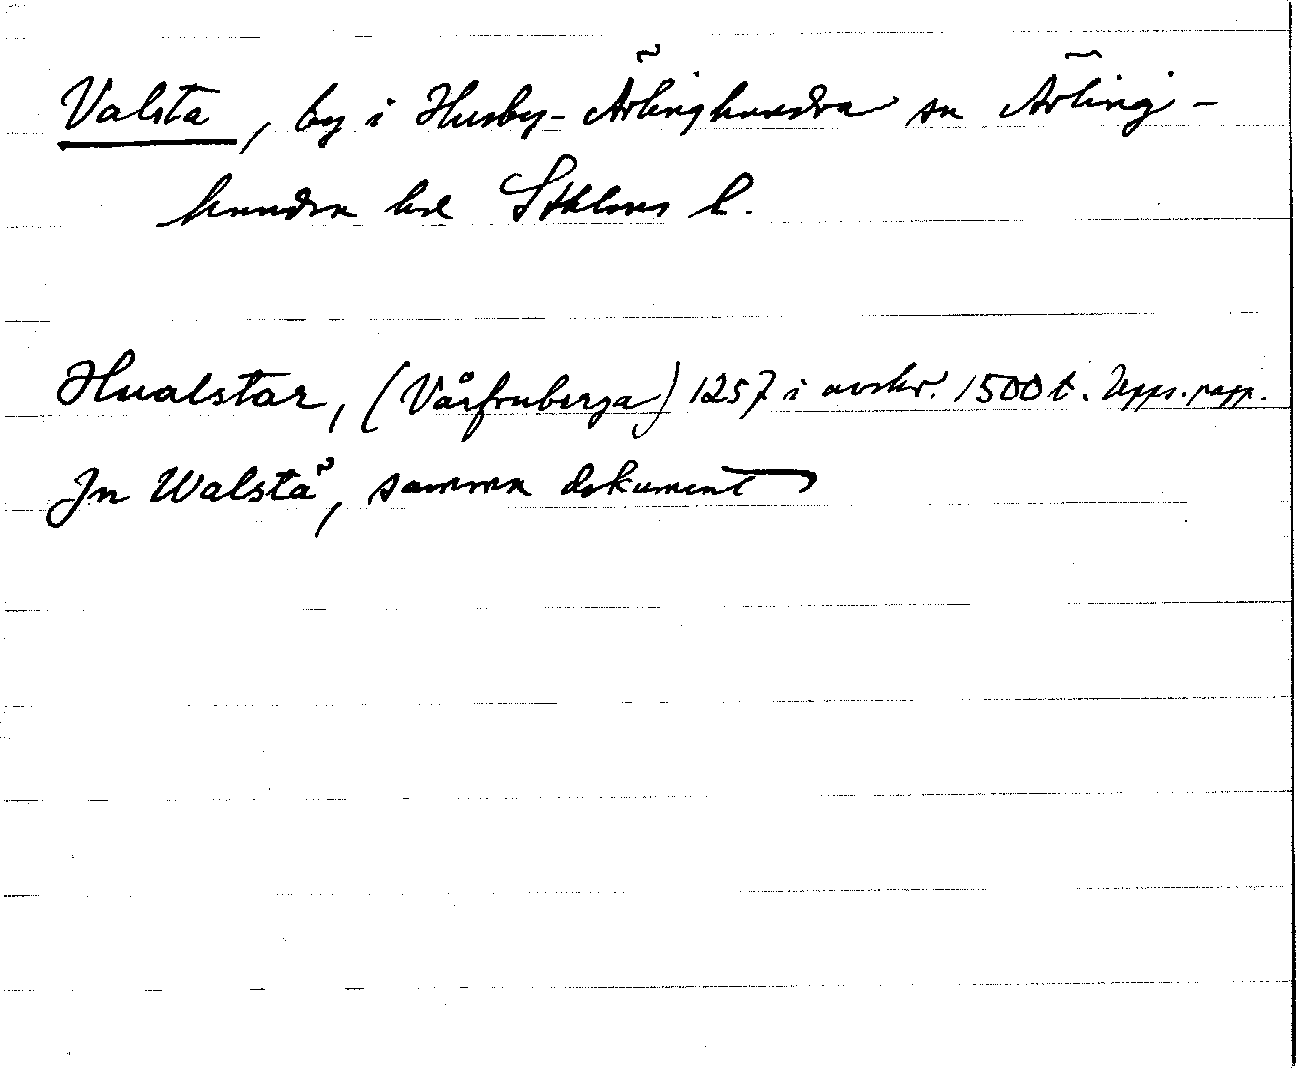 Valsta, by i Husby-Ärlinghundra sn Ärling-
hundra hd Sthlms l.
Hualstar, (Vårfruberga) 1257 i avskr. 1500 t. Upps. papp.
Jn Walstä, samma dokument